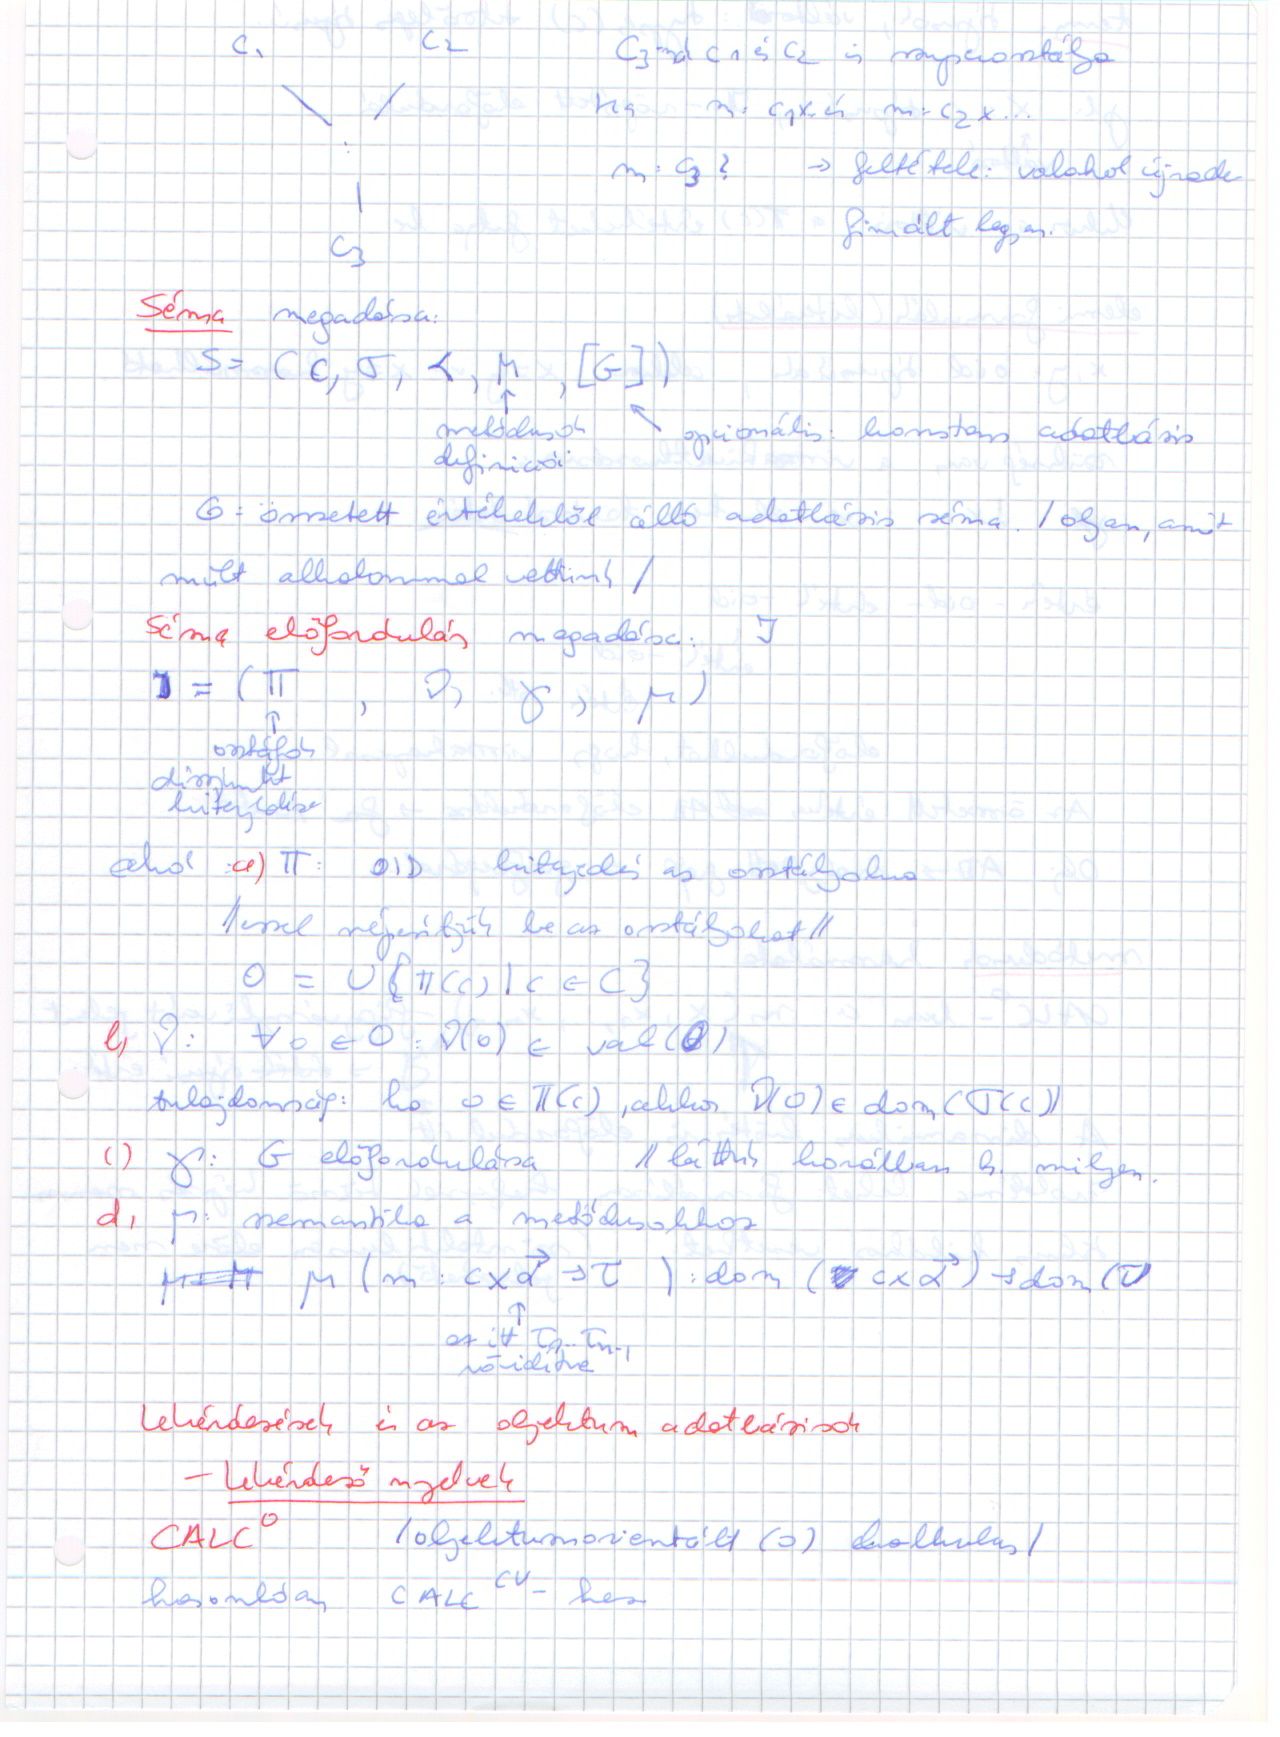 C1 C2 C3-nál C1 és C2 is szuperosztálya
Ha m: c1x és m: c2x...
m: c3? → feltétele: valahol újrade
finiált legyen.
C3
Séma megadása:
S = (C, σ, ≺, M, [G])
metódusok opcionális: konstans adatbázis
definíciói
G = összetett értékekből álló adatbázis séma. / olyan, amit
múlt alkalommal vettünk /
Séma előfordulás megadása: I
I = (π, ν, γ, μ)
osztályok
diszjunkt
kiterjedése
ahol a) π: OID kiterjedés az osztályokra
// ezzel népesítjük be az osztályokat //
O = ∪{π(c) | c ∈ C}
b, ν: ∀o ∈ O: ν(o) ∈ val(O)
tulajdonság: ha o ∈ π(c), akkor ν(o) ∈ dom(σ(c))
c) γ: G előfordulása // láttuk korábban h. milyen.
d, μ: szemantika a metódusokhoz
μ (m: c x α⃗ → τ): dom (c x α⃗) → dom(τ
ez itt τ2...τn-1
rövidítve
Lekérdezések és az objektum adatbázisok
- Lekérdező nyelvek
CALC^O /objektumorientált (o) kalkulus/
hasonlóan CALC^CV-hez